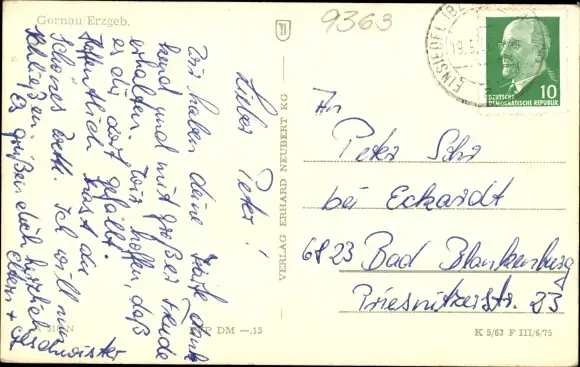 Gornau/Erzgeb.
9363
Lieber Peter!
Wir haben deine Karte dank
kend und mit großer Freude
erhalten. Wir hoffen, daß
es dir dort gefällt.
Hoffentlich hast du
schönes Wett. Ich will nun
schließen.
Es grüßen dich herzlich
Eltern + Geschwister
VERLAG ERHARD NEUBERT KG
DM —,15
EINSIEDEL
10
DEUTSCHE
DEMOKRATISCHE REPUBLIK
An
Peter
bei Eckardt
6823 Bad Blankenburg
Priesnitzerstr. 23
K 5/63 F III/6/75